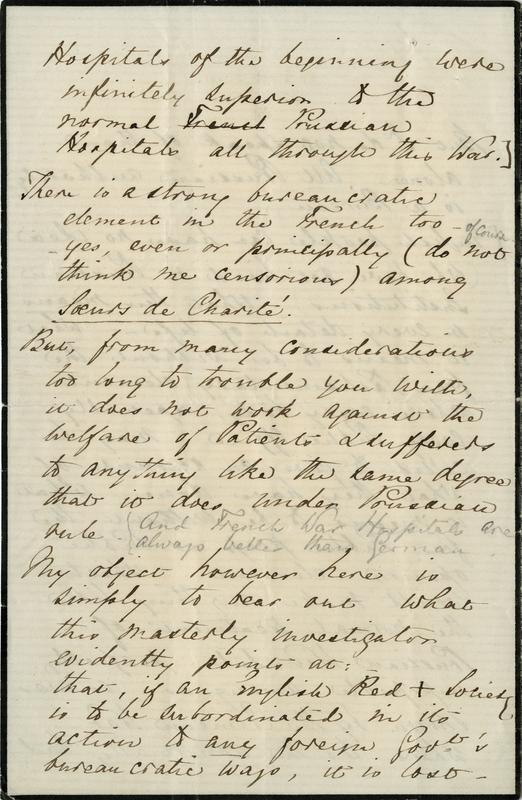 Hospitals of the beginning were
infinitely superior to the
normal French Prussian
Hospitals all through this War.]
There is a strong bureaucratic
element in the French too - of course
- yes, even or principally (do not
think me censorious) among
Sœurs de Charité.
But, from many considerations
too long to trouble you with,
it does not work against the
welfare of Patients & sufferers
to anything like the same degree
that it does under Prussian
rule. (And French War Hospitals are
always better than German
My object however here is
simply to bear out what
this masterly investigator
evidently points at:
that, if an English Red + Society
is to be subordinated in its
action to any foreign Govt's
bureaucratic ways, it is lost -